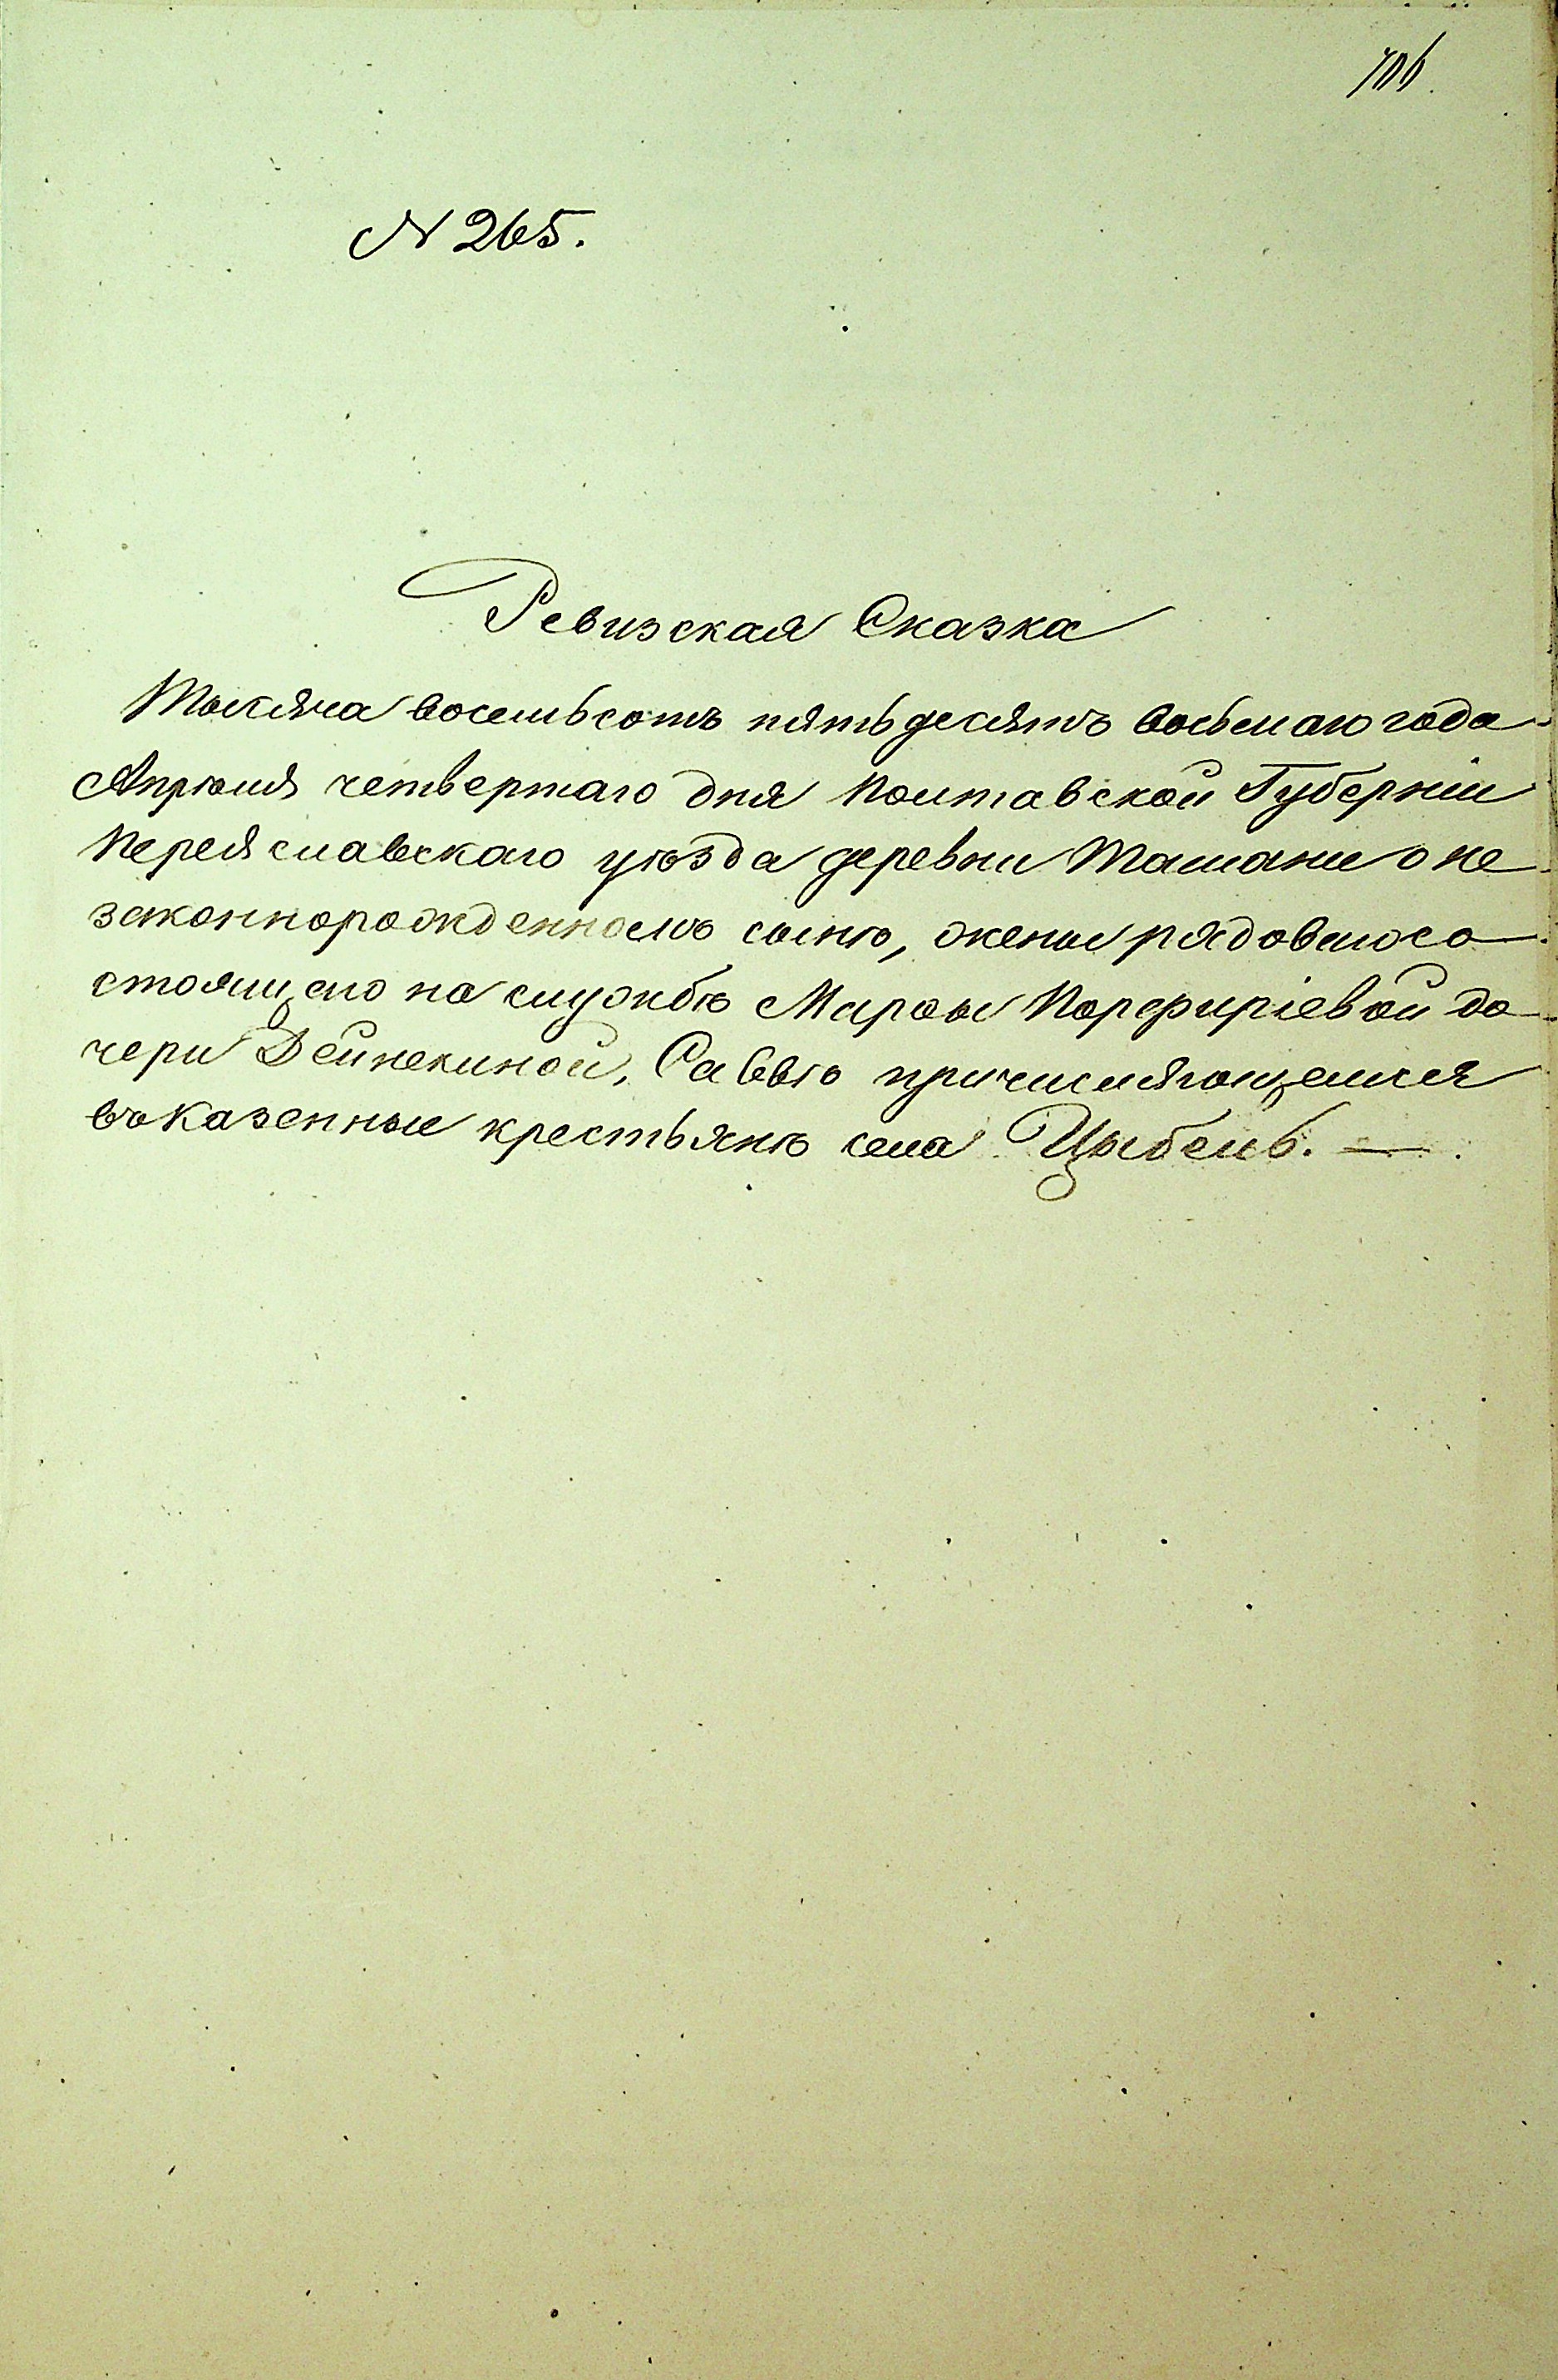 706.
N 265.
Ревизская Сказка
Тысяча восемьсотъ пятьдесятъ восьмаго года
Апрѣля четвертаго дня Полтавской Губерніи
Переяславскаго уѣзда деревни Ташани о не
законнорожденномъ сынѣ, жены рядоваго со
стоящаго на службѣ Марѳы Порфиріевой до
чери Дейнекиной, Саввѣ причисляющемся
въ казенные крестьяне села Цыбель. —